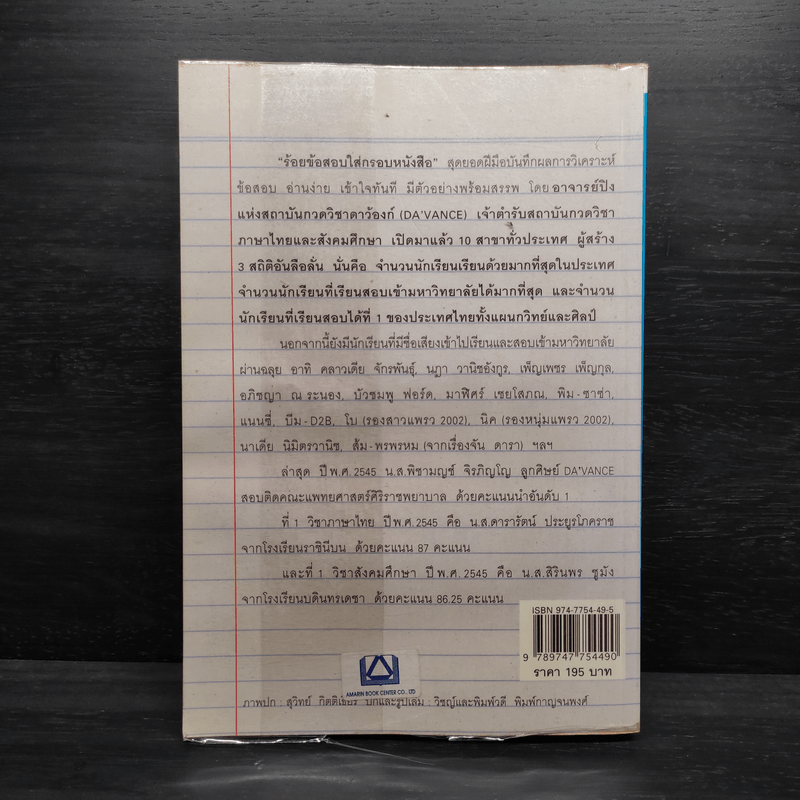 "ร้อยข้อสอบใส่กรอบหนังสือ" สุดยอดฝีมือบันทึกผลการวิเคราะห์
ข้อสอบ อ่านง่าย เข้าใจทันที มีตัวอย่างพร้อมสรรพ โดย อาจารย์ปิง
แห่งสถาบันกวดวิชาดาว้องก์ (DA'VANCE) เจ้าตำรับสถาบันกวดวิชา
ภาษาไทยและสังคมศึกษา เปิดมาแล้ว 10 สาขาทั่วประเทศ ผู้สร้าง
3 สถิติอันลือลั่น นั่นคือ จำนวนนักเรียนเรียนด้วยมากที่สุดในประเทศ
จำนวนนักเรียนที่เรียนสอบเข้ามหาวิทยาลัยได้มากที่สุด และจำนวน
นักเรียนที่เรียนสอบได้ที่ 1 ของประเทศไทยทั้งแผนกวิทย์และศิลป์
นอกจากนี้ยังมีนักเรียนที่มีชื่อเสียงเข้าไปเรียนและสอบเข้ามหาวิทยาลัย
ผ่านฉลุย อาทิ คลาวเดีย จักรพันธุ์, นฎา วานิชอังกูร, เพ็ญเพชร เพ็ญกุล,
อภิชญา ณ ระนอง, บัวชมพู ฟอร์ด, มาฬิศร์ เชยโสภณ, พิม-ซาซ่า,
แนนซี่, บีม-D2B, โบ (รองสาวแพรว 2002), นิค (รองหนุ่มแพรว 2002),
นาเดีย นิมิตรวานิช, ส้ม-พรพรหม (จากเรื่องจัน ดารา) ฯลฯ
ล่าสุด ปีพ.ศ. 2545 น.ส.พิชามญช์ จิรภิญโญ ลูกศิษย์ DA'VANCE
สอบติดคณะแพทยศาสตร์ศิริราชพยาบาล ด้วยคะแนนนำอันดับ 1
ที่ 1 วิชาภาษาไทย ปีพ.ศ. 2545 คือ น.ส.ดารารัตน์ ประยูรโภคราช
จากโรงเรียนราชินีบน ด้วยคะแนน 87 คะแนน
และที่ 1 วิชาสังคมศึกษา ปีพ.ศ. 2545 คือ น.ส.สิรินพร ชูมัง
จากโรงเรียนบดินทรเดชา ด้วยคะแนน 86.25 คะแนน
ISBN 974-7754-49-5
9 789747 754490
ราคา 195 บาท
AMARIN BOOK CENTER CO., LTD
ภาพปก : สุวิทย์ ปกและรูปเล่ม : วิชญ์และพิมพ์วดี พิมพ์กาญจนพงศ์